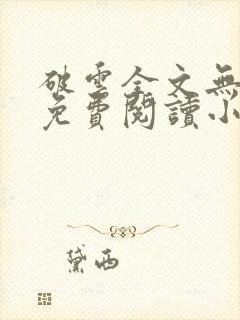 破雲全文無
免費閱讀小
黛西